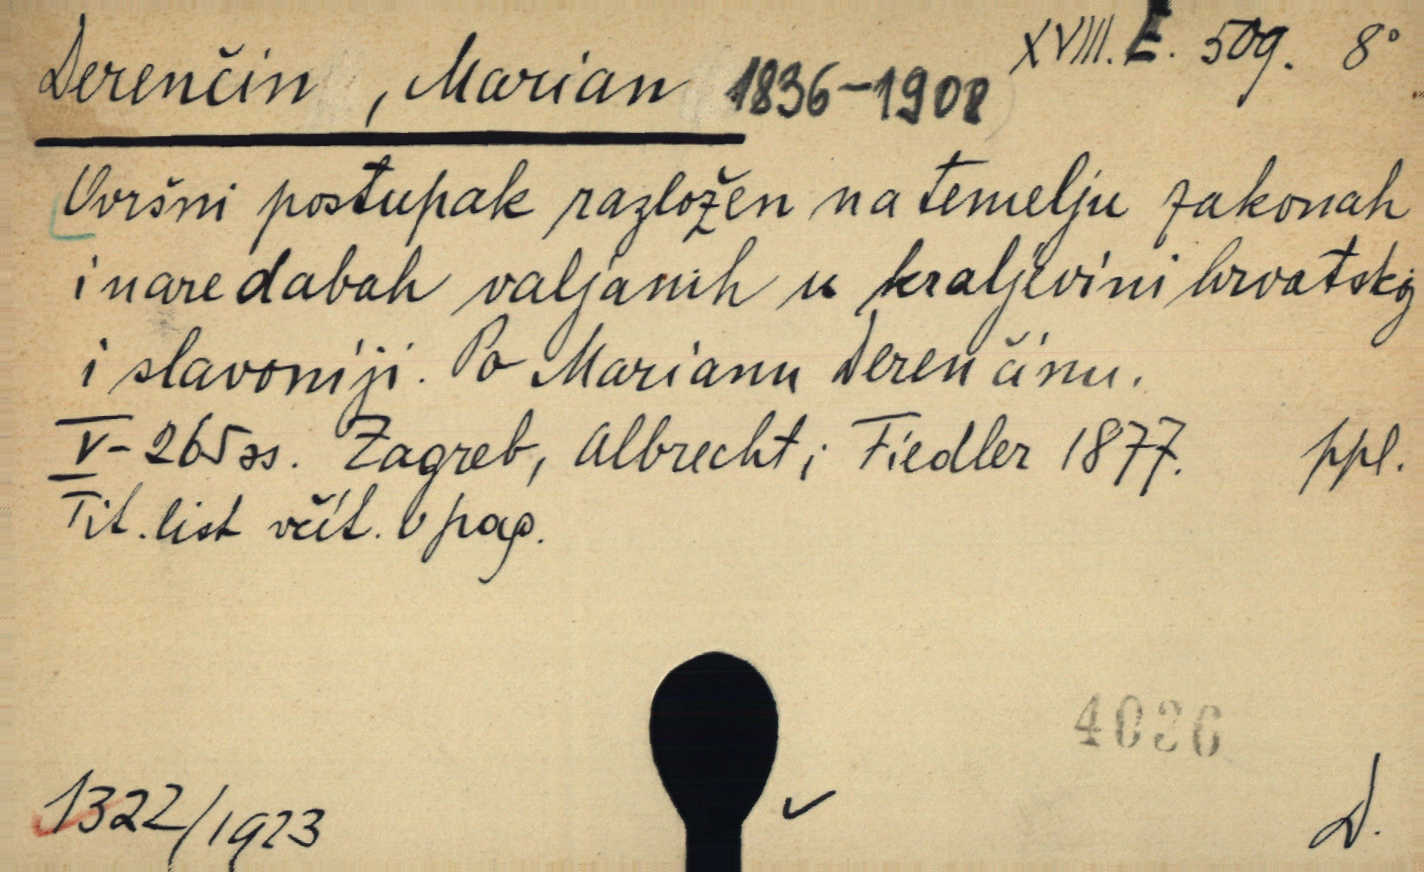 Derenčin, Marian 1836-1908 XVIII. E. 509. 8°
Ovršni postupak razložen na temelju zakonah
i naredabah valjanih u kraljevini hrvatskoj
i slavoniji. Po Marianu Derenčinu.
V-265 ss. Zagreb, Albrecht i Fiedler 1877. ppl.
Tit. list včít. v pag.
4036
1322/1923 D.